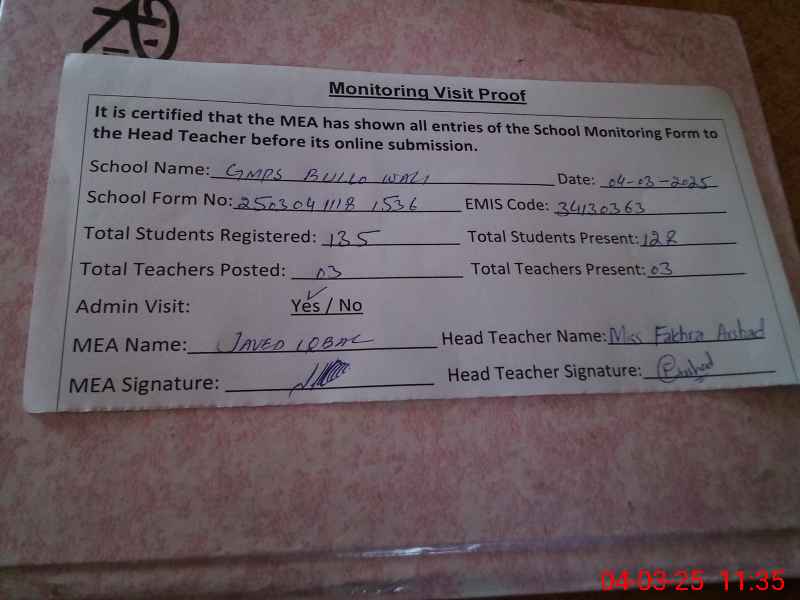 Monitoring Visit Proof
It is certified that the MEA has shown all entries of the School Monitoring Form to
the Head Teacher before its online submission.
School Name: GMPS BULLO WALI Date: 04-03-2025
School Form No: 250304 1118 1536 EMIS Code: 34130363
Total Students Registered: 135 Total Students Present: 128
Total Teachers Posted: 03 Total Teachers Present: 03
Admin Visit: Yes / No
MEA Name: JAVED IQBAL Head Teacher Name: Miss Fakhra Arshad
MEA Signature: Head Teacher Signature:
04-03-25 11:35